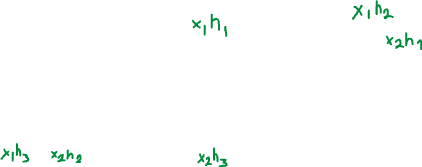 x₁h₁ x₁h₂
x₂h₁
x₁h₃ x₂h₂ x₂h₃